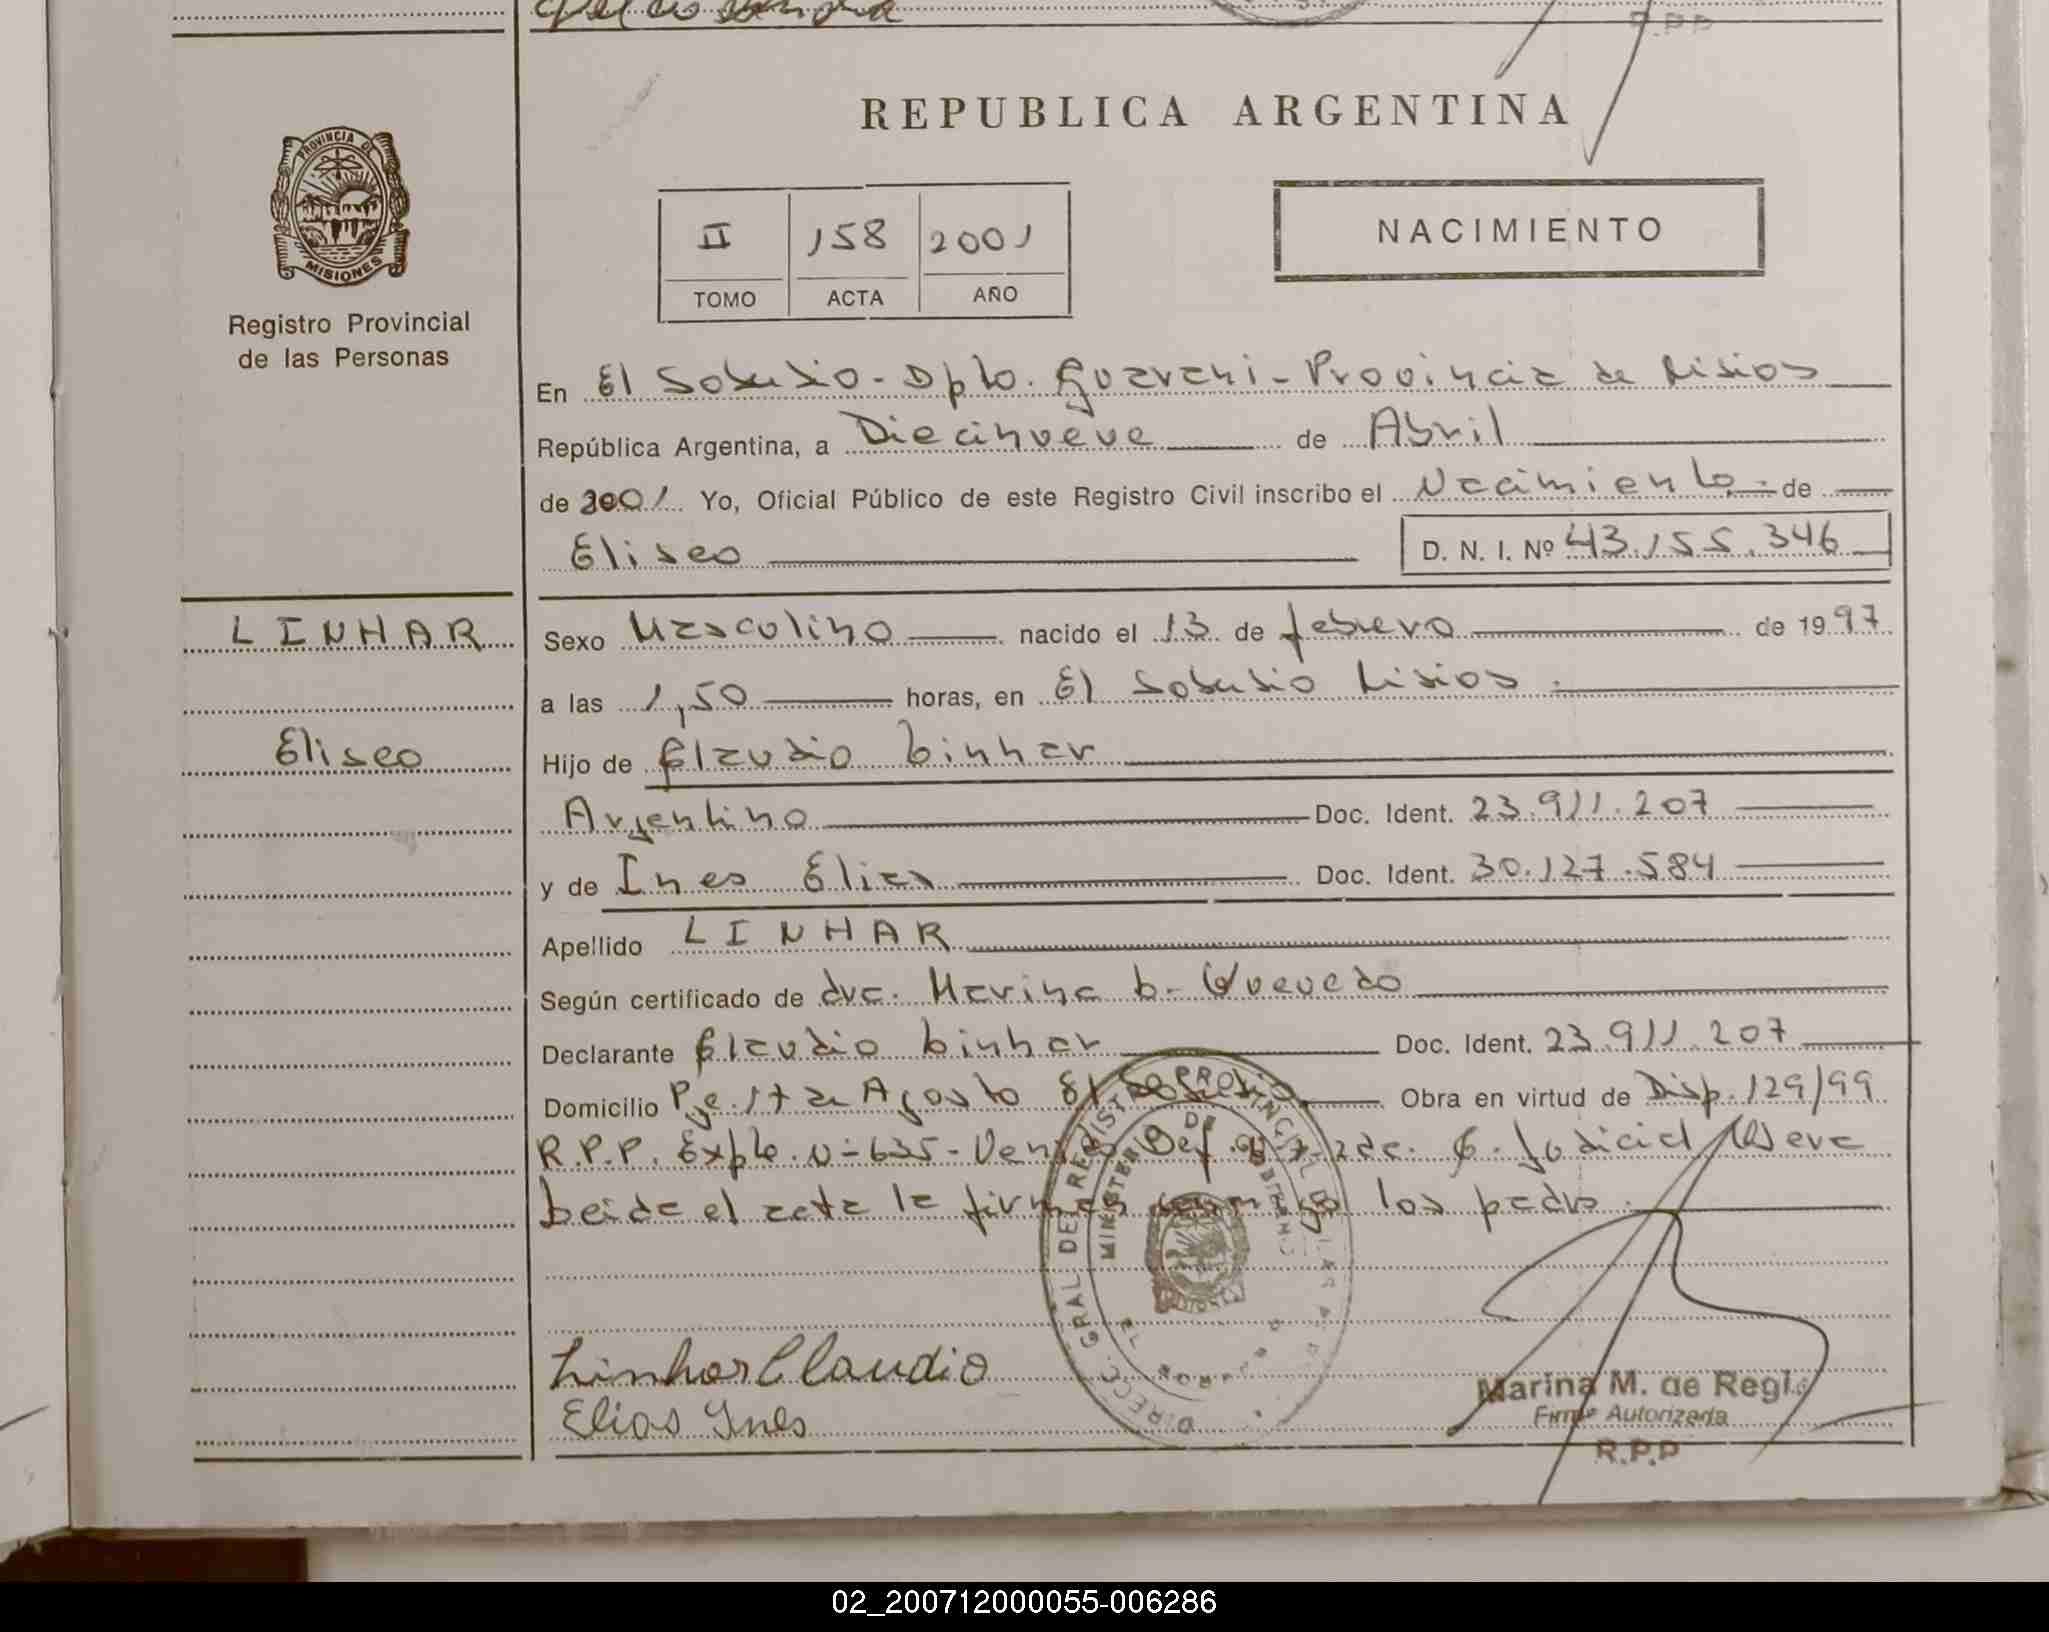 R.P.P
PROVINCIA DE
MISIONES
Registro Provincial
de las Personas
REPUBLICA ARGENTINA
II 158 2001
TOMO ACTA AÑO
NACIMIENTO
En El Soberbio - Dpto. Guarani - Provincia de Misios
República Argentina, a Diecinueve de Abril
de 2001 Yo, Oficial Público de este Registro Civil inscribo el Nacimiento de
Eliseo D. N. I. Nº 43.155.346
LINHAR
Eliseo
Sexo Masculino nacido el 13 de febrero de 1997
a las 1,50 horas, en El Soberbio Misios.
Hijo de Claudio Linhar
Argentino Doc. Ident. 23.911.207
y de Ines Elias Doc. Ident. 30.127.584
Apellido LINHAR
Según certificado de dra. Marina b. Quevedo
Declarante Claudio Linhar Doc. Ident. 23.911.207
Domicilio Pje. 17 de Agosto El Soberbio. Obra en virtud de Disp. 129/99
R.P.P. Expte. N-635- Def. C. Judicial
Leida el acta la firman conmigo los padrs.
DIRECC. GRAL DEL REGISTRO PROVINCIAL DE LAS
MINISTERIO DE GOBIERNO
Linhar Claudio
Elias Ines
Marina M. de Regi
Firma Autorizada
R.P.P
02_200712000055-006286